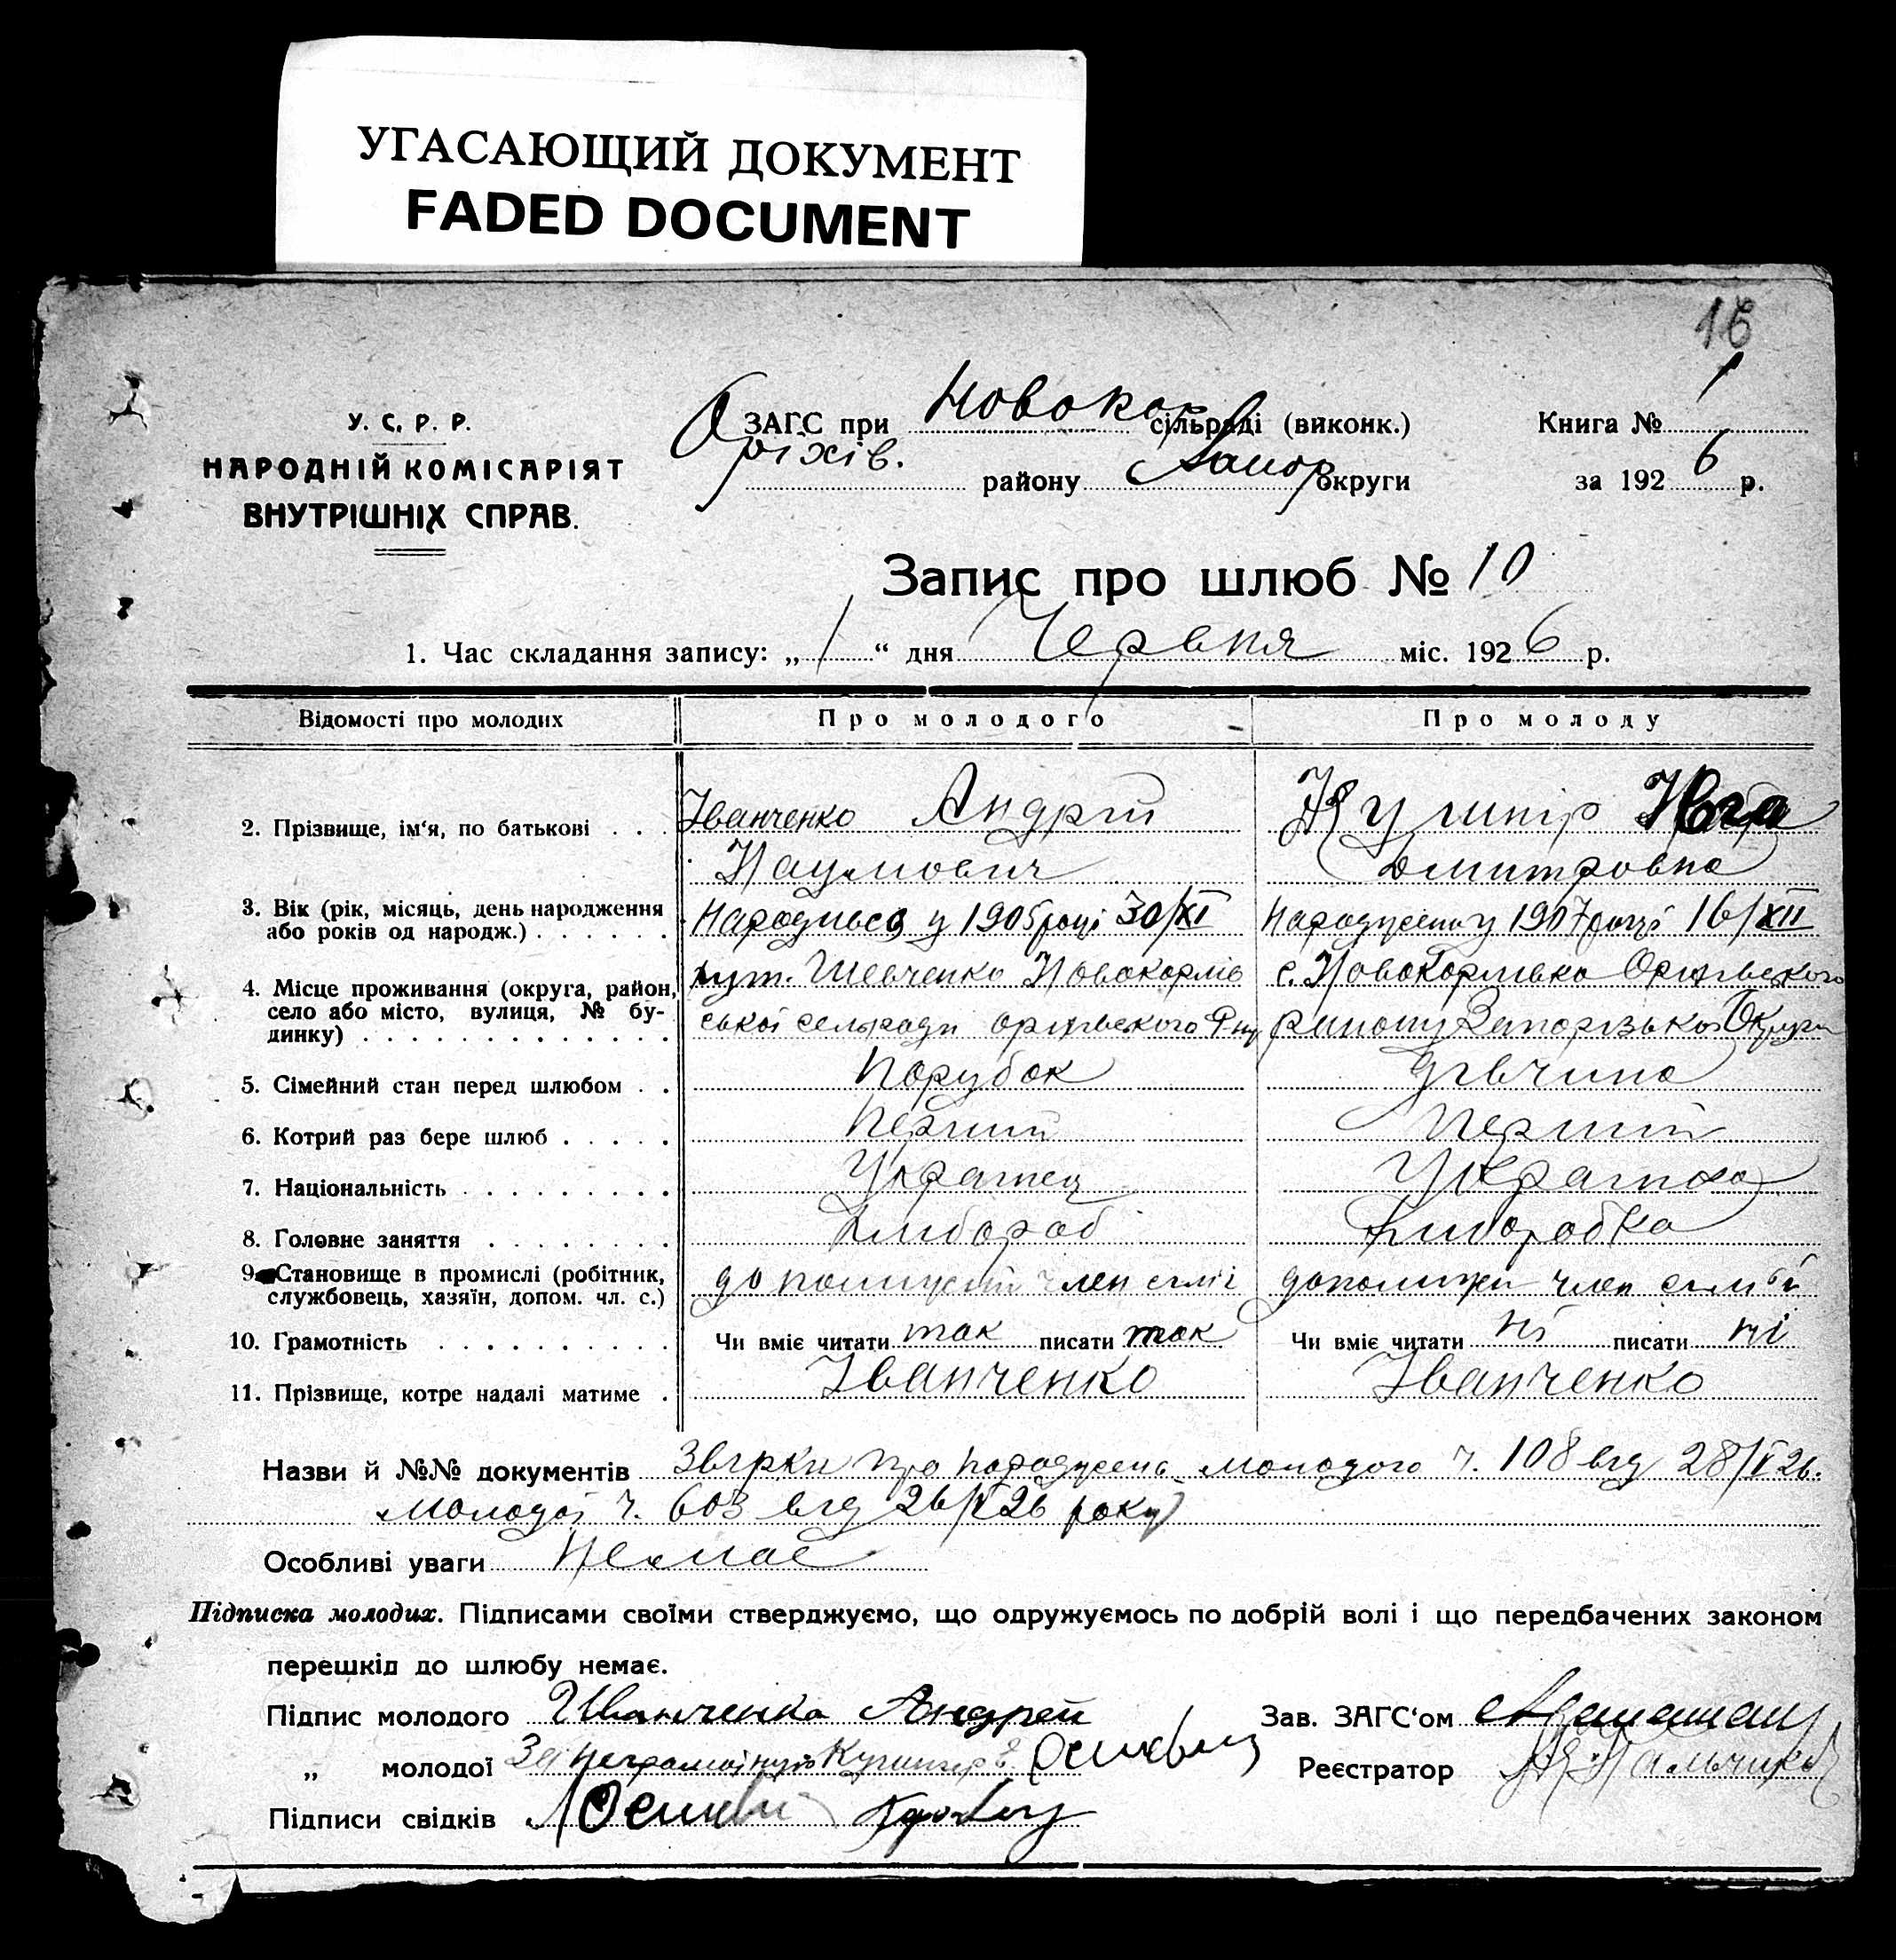 УГАСАЮЩИЙ ДОКУМЕНТ
FADED DOCUMENT
16
У. С. Р. Р.
НАРОДНІЙ КОМІСАРІЯТ
ВНУТРІШНІХ СПРАВ.
ЗАГС при Новокар сільраді (виконк.)
Оріхів. району Запор округи
Книга № 1
за 1926 р.
Запис про шлюб № 10
1. Час складання запису: „ 1 “ дня Червня міс. 1926 р.
Відомості про молодих Про молодого Про молоду
2. Прізвище, ім‘я, по батькові . . . Іванченко Андрій Кушнір Ївга
Наумович Дмитровна
3. Вік (рік, місяць, день народження
або років од народж.) . . . . . .
Народився у 1905 році 30/XI
у 1907 році 16/XII
4. Місце проживання (округа, район,
село або місто, вулиця, № бу-
динку) . . . . . . . . . . . . .
хут. Шевченко Новокарлів
ської сельради оріхівського Р-ну
с. Новокарлівка Оріхівського
району Запорізької Округи
5. Сімейний стан перед шлюбом . . Парубок Дівчина
6. Котрий раз бере шлюб . . . . . Перший Перший
7. Національність . . . . . . . . . Українец Українка
8. Головне заняття . . . . . . . . Хлібороб Хлиборобка
9. Становище в промислі (робітник,
службовець, хазяїн, допом. чл. с.)
член сімї
член
10. Грамотність . . . . . . . . . . Чи вміє читати так писати так Чи вміє читати ні писати ні
11. Прізвище, котре надалі матиме . Іванченко Іванченко
Назви й №№ документів Звірки про молодого ч. 108 від 28/V 26.
молодої ч. 603 від 26/V 26 року
Особливі уваги Немає
Підписка молодих. Підписами своїми стверджуємо, що одружуємось по добрій волі і що передбачених законом
перешкід до шлюбу немає.
Підпис молодого Иванченко Андрей Зав. ЗАГС‘ом
„ молодої За неграмотную Кушнир Е Реєстратор
Підписи свідків